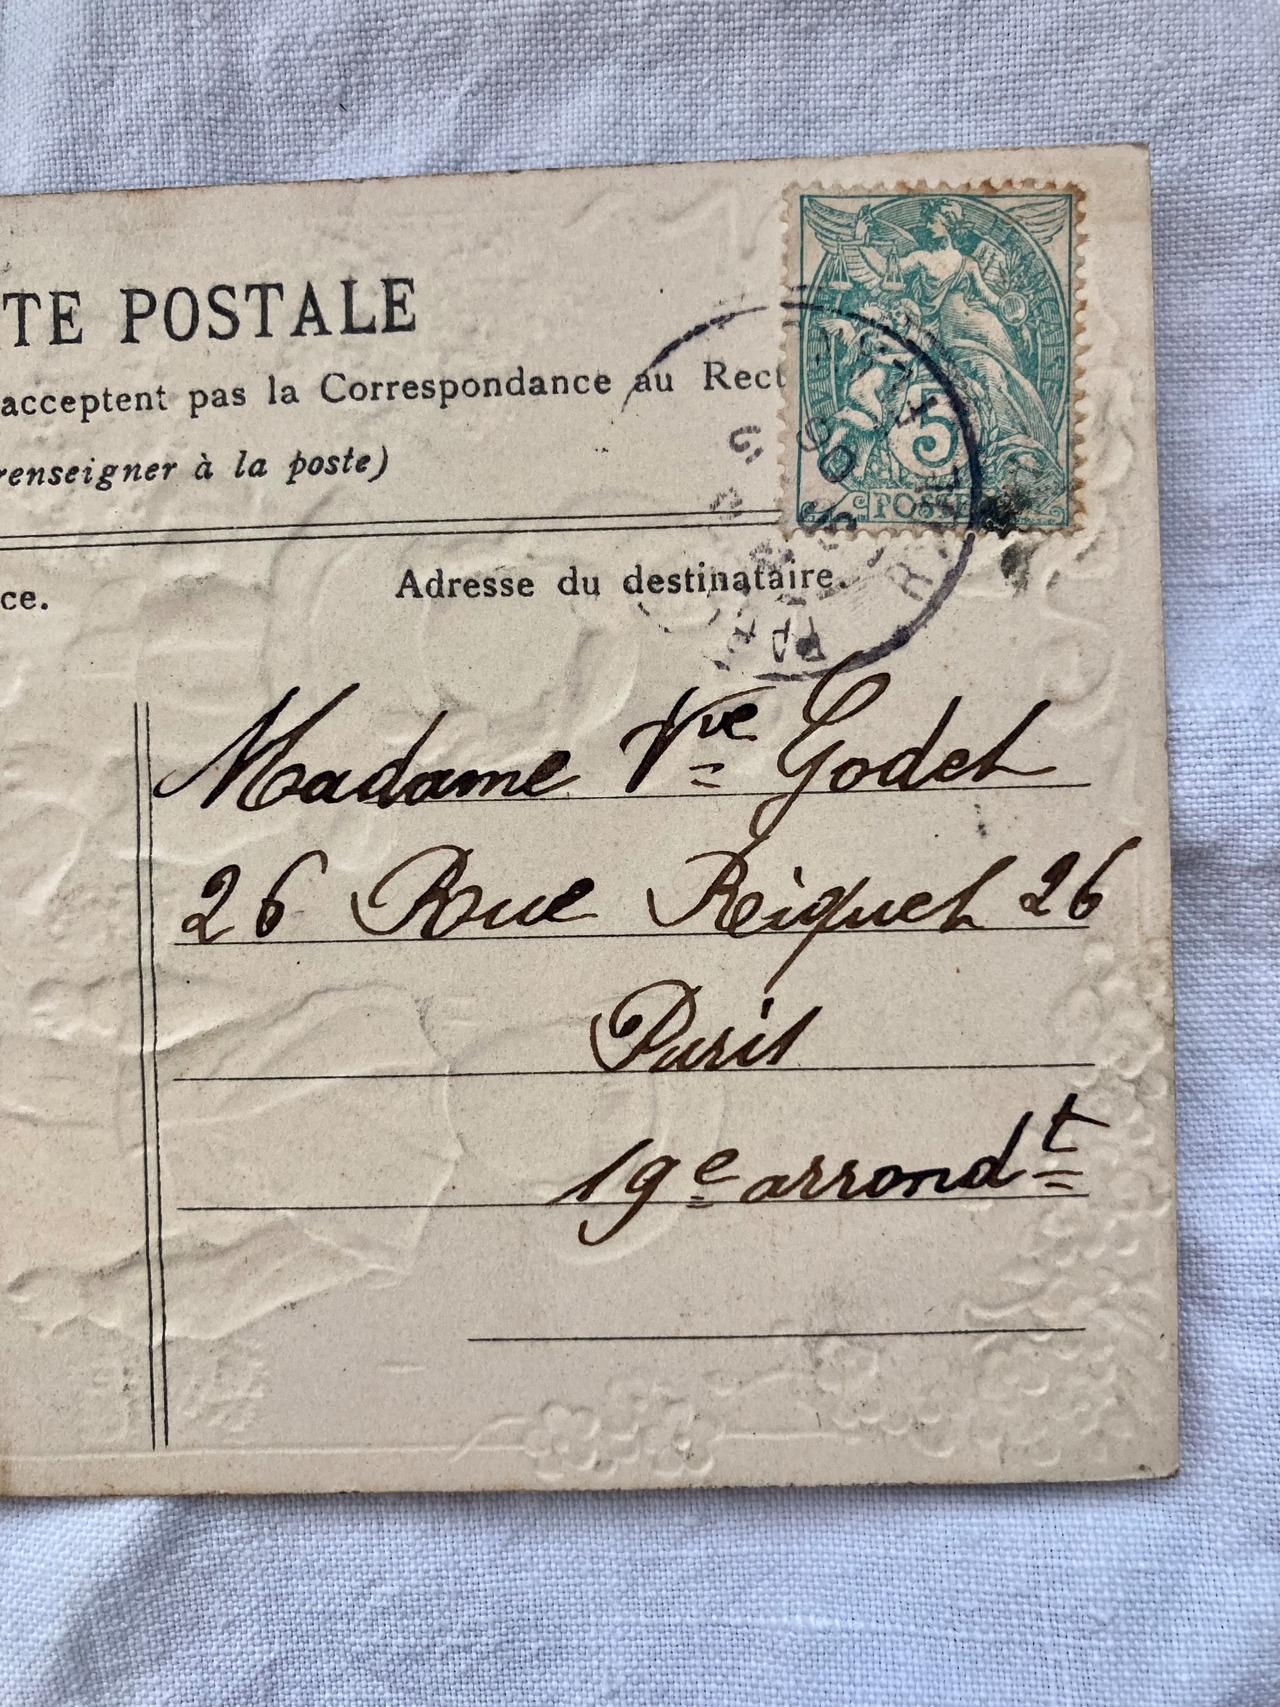 TE POSTALE
acceptent pas la Correspondance au Rect
renseigner à la poste)
5
POSTES
ce.
Adresse du destinataire.
Madame Vve Godet
26 Rue Riquet 26
Paris
19e arrondt